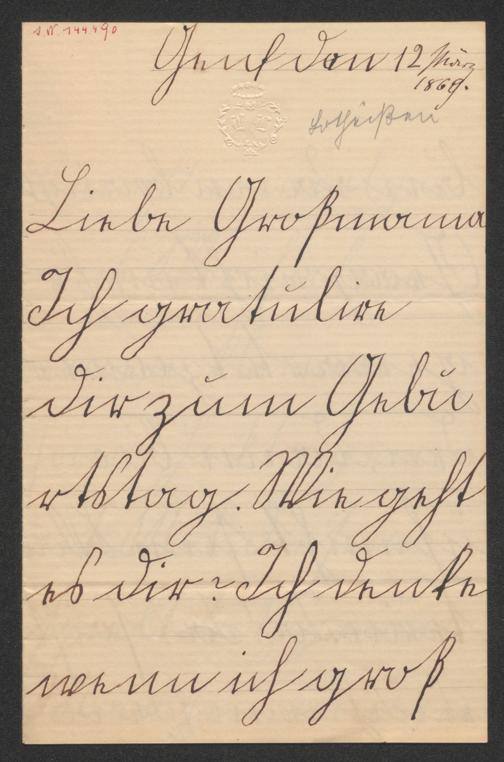 I.N. 144.490
Genf den 12 März
1869.
Lotheißen
Liebe Großmama
Ich gratulire
dir zum Gebu
rtstag. Wie geht
es dir? Ich denke
wenn ich groß